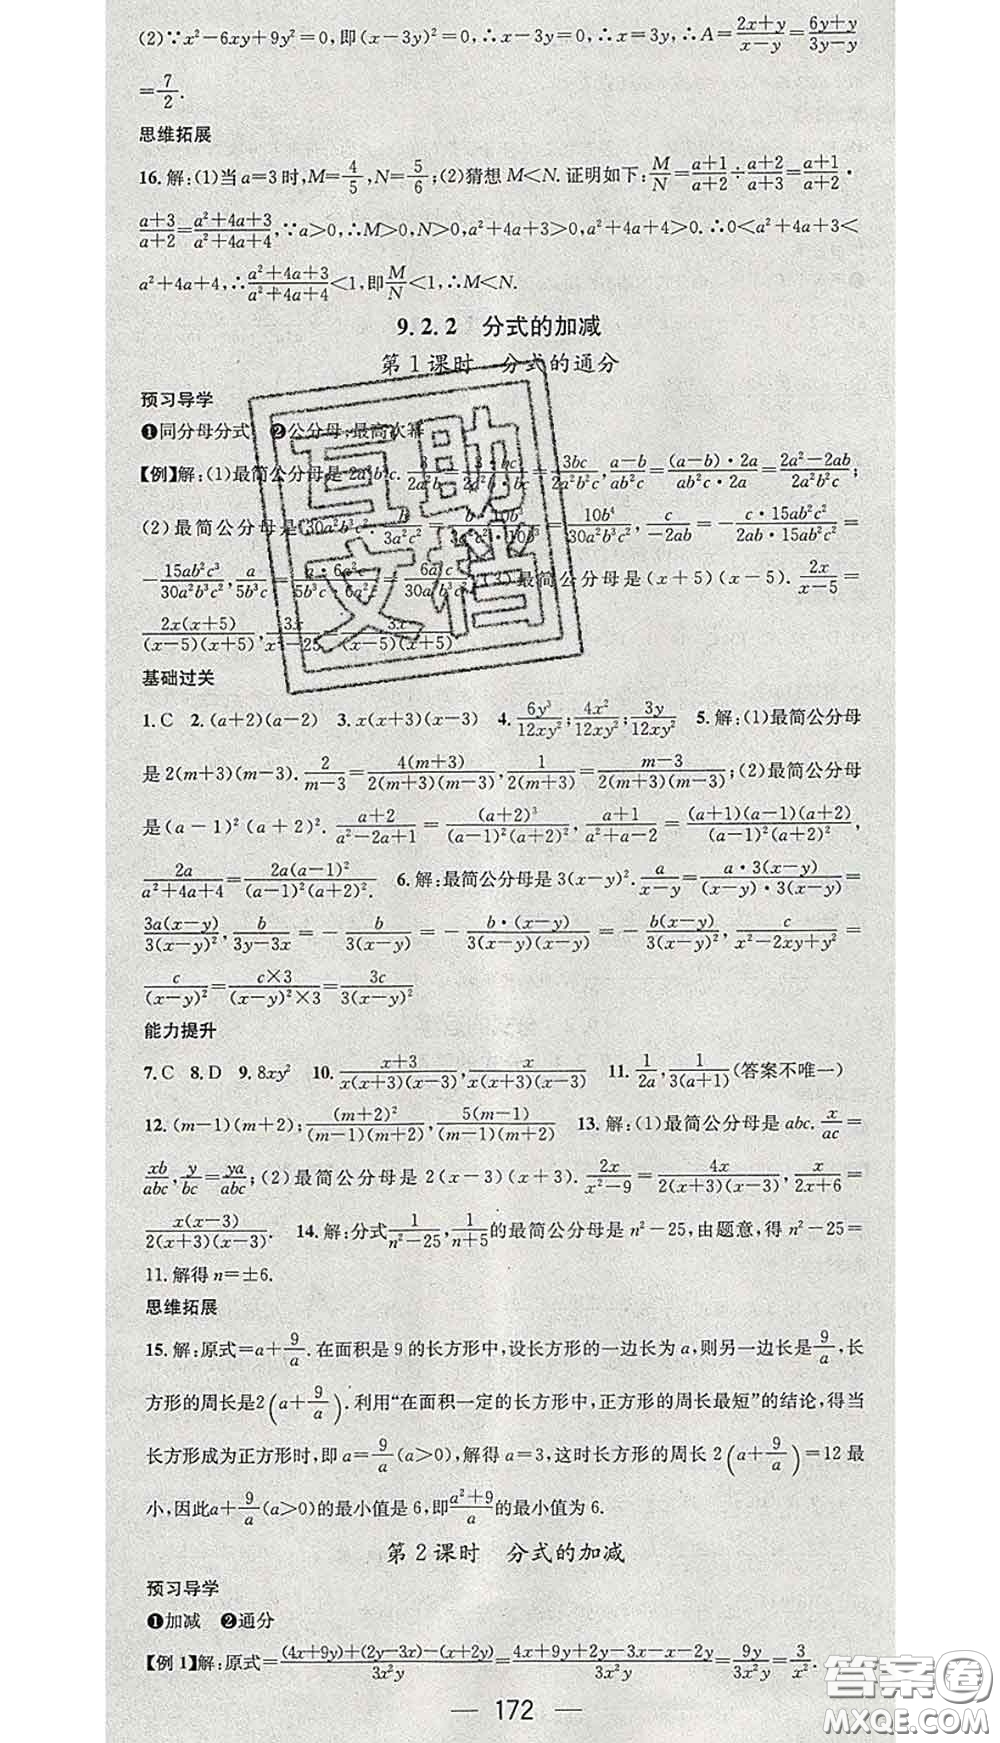 (2)∵x²-6xy+9y²=0,即(x-3y)²=0,∴x-3y=0,∴x=3y,∴A=(2x+y)/(x-y)=(6y+y)/(3y-y)
=7/2.
思维拓展
16.解:(1)当a=3时,M=4/5,N=5/6;(2)猜想M<N.证明如下:M/N=(a+1)/(a+2)÷(a+2)/(a+3)=(a+1)/(a+2)·
(a+3)/(a+2)=(a²+4a+3)/(a²+4a+4),∵a>0,∴M>0,N>0,a²+4a+3>0,a²+4a+4>0.∴0<a²+4a+3<
a²+4a+4,∴(a²+4a+3)/(a²+4a+4)<1,即M/N<1,∴M<N.
9.2.2 分式的加减
第1课时 分式的通分
预习导学
❶同分母分式 ❷公分母 最高次幂
【例】解:(1)最简公分母是2a²b²c. =3bc/(2a²b²c),(a-b)/(ab²c)=((a-b)·2a)/(ab²c·2a)=(2a²-2ab)/(2a²b²c);
(2)最简公分母是30a²b³c². =10b⁴/(30a²b³c²),c/(-2ab)=-(c·15ab²c²)/(2ab·15ab²c²)=
-15ab²c³/(30a²b³c²),a/(5b³c)= (3)最简公分母是(x+5)(x-5).2x/(x-5)=
2x(x+5)/((x-5)(x+5)),
基础过关
1.C 2.(a+2)(a-2) 3.x(x+3)(x-3) 4.6y³/(12xy²);4x²/(12xy²);3y/(12xy²) 5.解:(1)最简公分母
是2(m+3)(m-3).2/(m-3)=4(m+3)/(2(m+3)(m-3)),1/(2(m+3))=(m-3)/(2(m+3)(m-3));(2)最简公分母
是(a-1)²(a+2)².(a+2)/(a²-2a+1)=(a+2)³/((a-1)²(a+2)²),(a+1)/(a²+a-2)=(a+1)(a-1)(a+2)/((a-1)²(a+2)²),
2a/(a²+4a+4)=2a(a-1)²/((a-1)²(a+2)²). 6.解:最简公分母是3(x-y)².a/(x-y)=(a·3(x-y))/((x-y)·3(x-y))=
3a(x-y)/(3(x-y)²),b/(3y-3x)=-b/(3(x-y))=-(b·(x-y))/(3(x-y)(x-y))=-b(x-y)/(3(x-y)²),c/(x²-2xy+y²)=
c/(x-y)²=(c×3)/((x-y)²×3)=3c/(3(x-y)²)
能力提升
7.C 8.D 9.8xy² 10.(x+3)/(x(x+3)(x-3)),x/(x(x+3)(x-3)) 11.1/(2a),1/(3(a+1))(答案不唯一)
12.(m-1)(m+2);(m+2)²/((m-1)(m+2)),5(m-1)/((m-1)(m+2)) 13.解:(1)最简公分母是abc.x/(ac)=
xb/(abc),y/(bc)=ya/(abc);(2)最简公分母是2(x-3)(x+3).2x/(x²-9)=4x/(2(x+3)(x-3)),x/(2x+6)=
x(x-3)/(2(x+3)(x-3)). 14.解:分式1/(n²-25),1/(n+5)的最简公分母是n²-25,由题意,得n²-25=
11.解得n=±6.
思维拓展
15.解:原式=a+9/a.在面积是9的长方形中,设长方形的一边长为a,则另一边长是9/a,长
方形的周长是2(a+9/a).利用“在面积一定的长方形中,正方形的周长最短”的结论,得当
长方形成为正方形时,即a=9/a(a>0),解得a=3,这时长方形的周长2(a+9/a)=12最
小,因此a+9/a(a>0)的最小值是6,即(a²+9)/a的最小值为6.
第2课时 分式的加减
预习导学
❶加减 ❷通分
【例1】解:原式=((4x+9y)+(2y-3x)-(x+2y))/(3x²y)=(4x+9y+2y-3x-x-2y)/(3x²y)=9y/(3x²y)=3/x².
— 172 —
互助
文档
答案圈
MXQE.COM